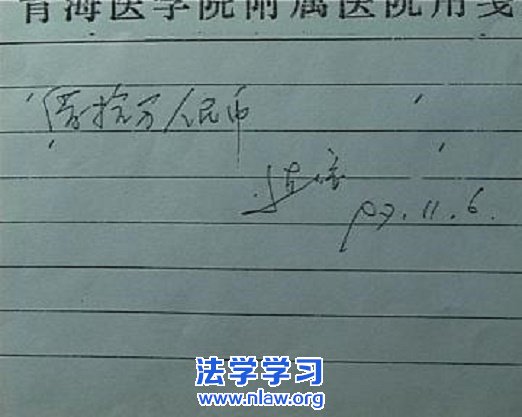 青海医学院附属医院用笺
借拾万人民币
11.6.
法学学习
www.nlaw.org